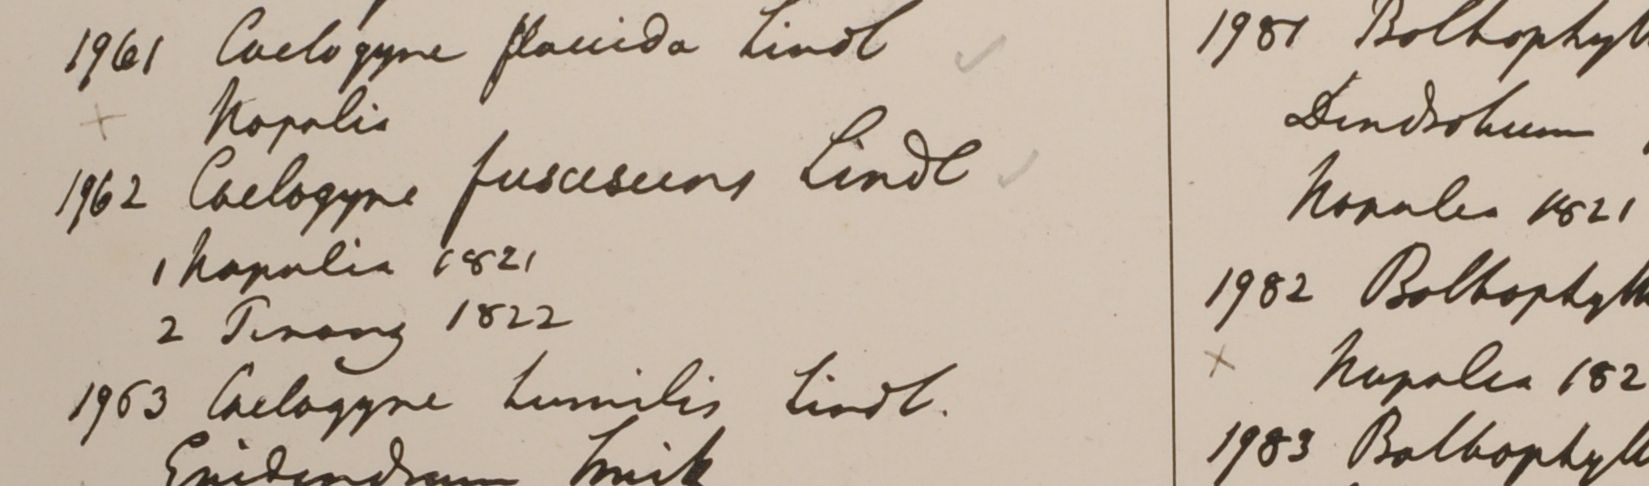 1961 Coelogyne flaccida Lindl
Napalia
1962 Coelogyne fuscescens Lindl
1 Napalia 1821
2 Penang 1822
1963 Coelogyne humilis Lindl.
Epidendrum Smith
1981 Bolbophyll
Dendrobium
Napalea 1821
1982 Bolbophyll
Napalea 182
1983 Bolbophyll